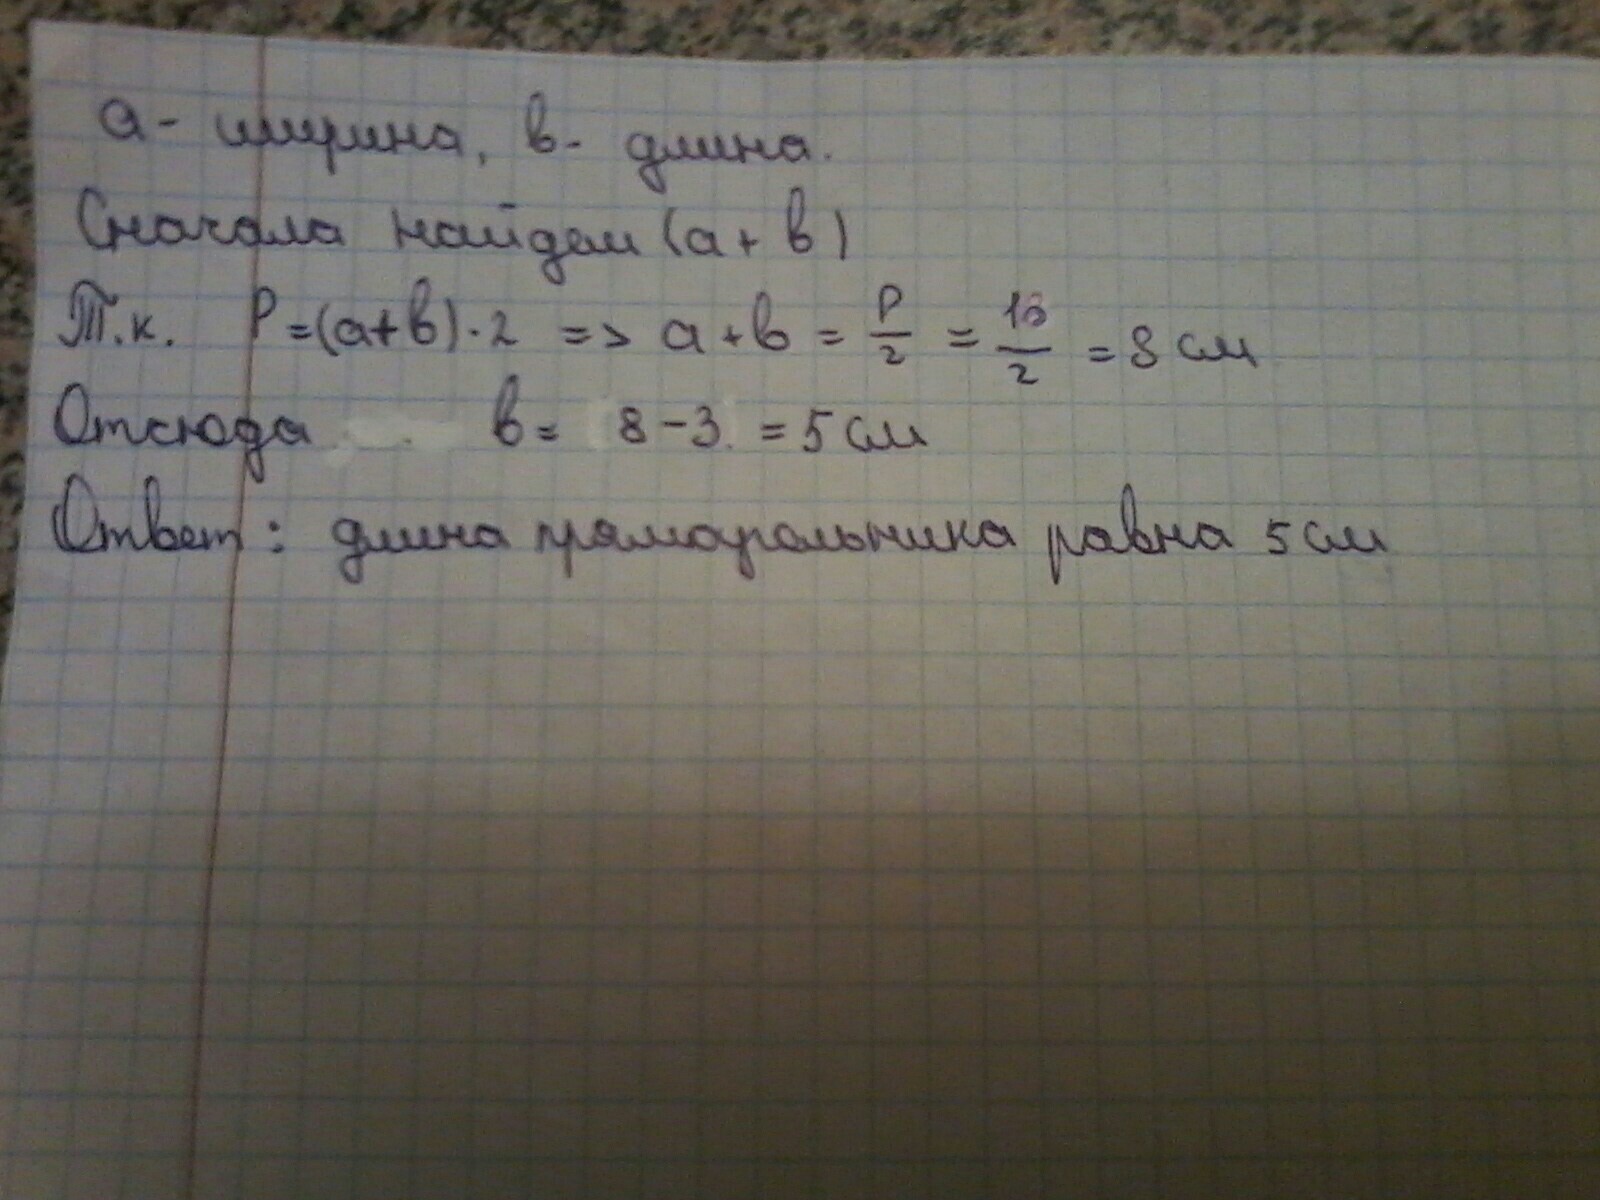 а - ширина, в - длина.
Сначала найдем (а + в)
Т.к. P = (а+в)·2 => а + в = P/2 = 16/2 = 8 см
Отсюда в = 8 - 3 = 5 см
Ответ: длина прямоугольника равна 5 см